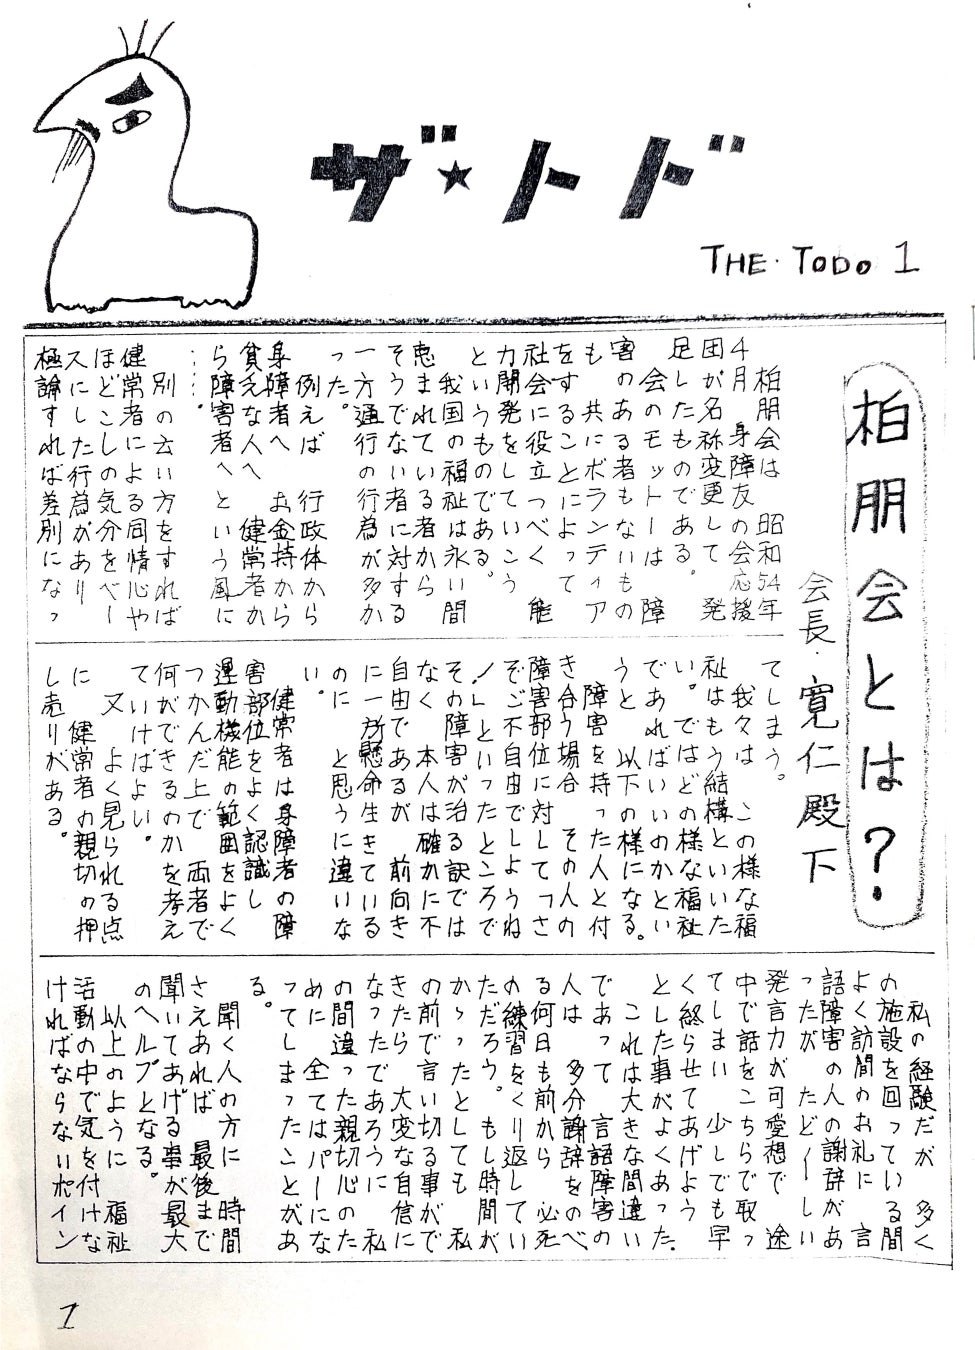 ザ★トド
THE・TODO 1
柏朋会とは?
会長・寛仁殿下
柏朋会は 昭和54年
4月 身障友の会応援
団が名称変更して 発
足したものである。
会のモットーは 障
害のある者もないもの
も 共にボランティア
をすることによって
社会に役立つべく 能
力開発をしていこう
というものである。
我国の福祉は永い間
恵まれている者から
そうでない者に対する
一方通行の行為が多か
った。
例えば 行政体から
身障者へ お金持から
貧えな人へ 健常者か
ら障害者へ という風に
……。
別の云い方をすれば
健常者による同情心や
ほどこしの気分をベー
スにした行為があり
極論すれば差別になっ
てしまう。
我々は この様な福
祉はもう結構といいた
い。ではどの様な福祉
であればいいのかとい
うと 以下の様になる。
障害を持った人と付
き合う場合 その人の
障害部位に対してつさ
ぞご不自由でしょうね
ノしといったところで
その障害が治る訳では
なく 本人は確かに不
自由であるが 前向き
に一所懸命生きている
のに と思うに違いな
い。
健常者は身障者の障
害部位をよく認識し
運動機能の範囲をよく
つかんだ上で 両者で
何ができるのかを考え
ていけばよい。
又 よく見られる点
に 健常者の親切の押
し売りがある。
私の経験だが 多く
の施設を回っている間
よく訪問のお礼に 言
語障害の人の謝辞があ
ったが たどーしい
発言力が可愛想で 途
中で話をこちらで取っ
てしまい 少しでも早
く終らせてあげよう
とした事がよくあった.
これは大きな間違い
であって 言語障害の
人は 多分謝辞をのべ
る何日も前から 必死
の練習をくり返してい
ただろう。もし時間が
かゝったとしても 私
の前で言い切る事がで
きたら 大変な自信に
なったであろうに 私
の間違った親切心のた
めに 全てはパーにな
ってしまったことがあ
る。
聞く人の方に 時間
さえあれば 最後まで
聞いてあげる事が最大
のヘルプとなる。
以上のように 福祉
活動の中で気を付けな
ければならないポイン
1